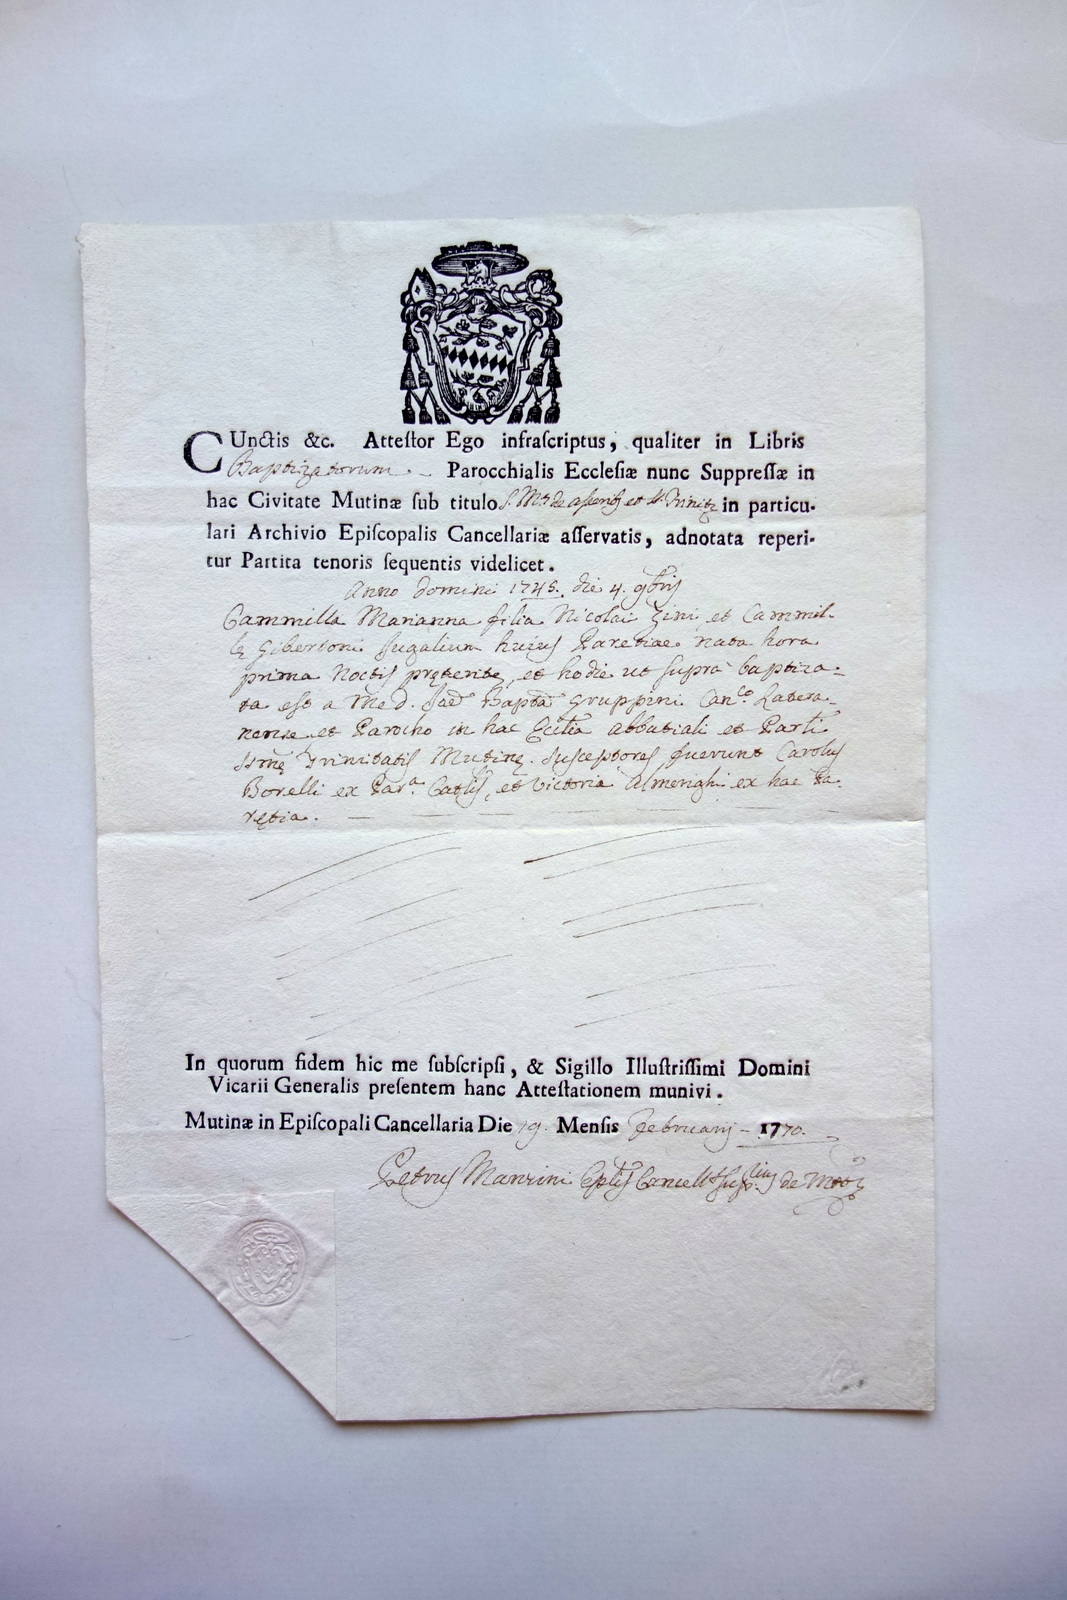 CUnctis &c. Atteſtor Ego infraſcriptus, qualiter in Libris
Baptizatorum. Parocchialis Eccleſiæ nunc Suppreſſæ in
hac Civitate Mutinæ ſub titulo S. Mæ de et in particu-
lari Archivio Epiſcopalis Cancellariæ aſſervatis, adnotata reperi-
tur Partita tenoris ſequentis videlicet.
Anno Domini 1745. die 4. 9bris
Cammilla Marianna filia Nicolai Zini et Cammil-
lę Gibertoni Jugalium huius Paretiae nata hora
prima noctis pręteritę, et hodie ut supra baptiza-
ta est a me D. Bapta Gruppini Canco Latera-
nense et Parocho in hac Ecclia abbatiali et Parli
SSmę Trinitatis Mutinę. Susceptores fuerunt Carolus
Borelli ex Para. Catlis, et Victoria Almenghi ex hac Pa-
rętia.
In quorum fidem hic me ſubſcripſi, & Sigillo Illuſtriſſimi Domini
Vicarii Generalis preſentem hanc Atteſtationem munivi.
Mutinæ in Epiſcopali Cancellaria Die 19. Mensis Februarij - 1770.
Petrus Manzini Eplis Cancells de